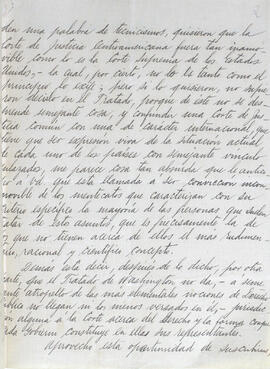 den una palabra de tecnicismos, quisieron que la
Corte de Justicia Centroamericana fuera tan inamo-
vible como lo es la Corte Suprema de los Estados
Unidos, - la cual, por cierto, no lo es tanto como el
principio lo exige; pero si lo quisieron, no supie-
ron decirlo en el Tratado, porque de este no se des-
prende semejante cosa, y confundir una Corte de jus-
ticia común con una de carácter internacional, que
tiene que ser expresion viva de la situación actual
de cada uno de los países con semejante vinculo
ligados, me parece cosa tan absurda que le antici-
po a Vd. que está llamada a ser convicción inconmo-
vible de los mentecatos que caracterizan con su
criterio específico la mayoría de las personas que
tratar de estos asuntos, que es precisamente la de
los que no tienen acerca de ellos el mas rudimen-
tario, racional y científico concepto.
Demás está decir, después de lo dicho, por otra
parte, que el Tratado de Washington no da, - a seme-
jante atropello de las mas elementales nociones de
no llegan ni los menos versados en el, - jurisdic-
cion alguna a la Corte acerca del derecho y la forma con que
cada Gobierno constituye en ellas sus representantes.
Aprovecho esta oportunidad de suscribirme